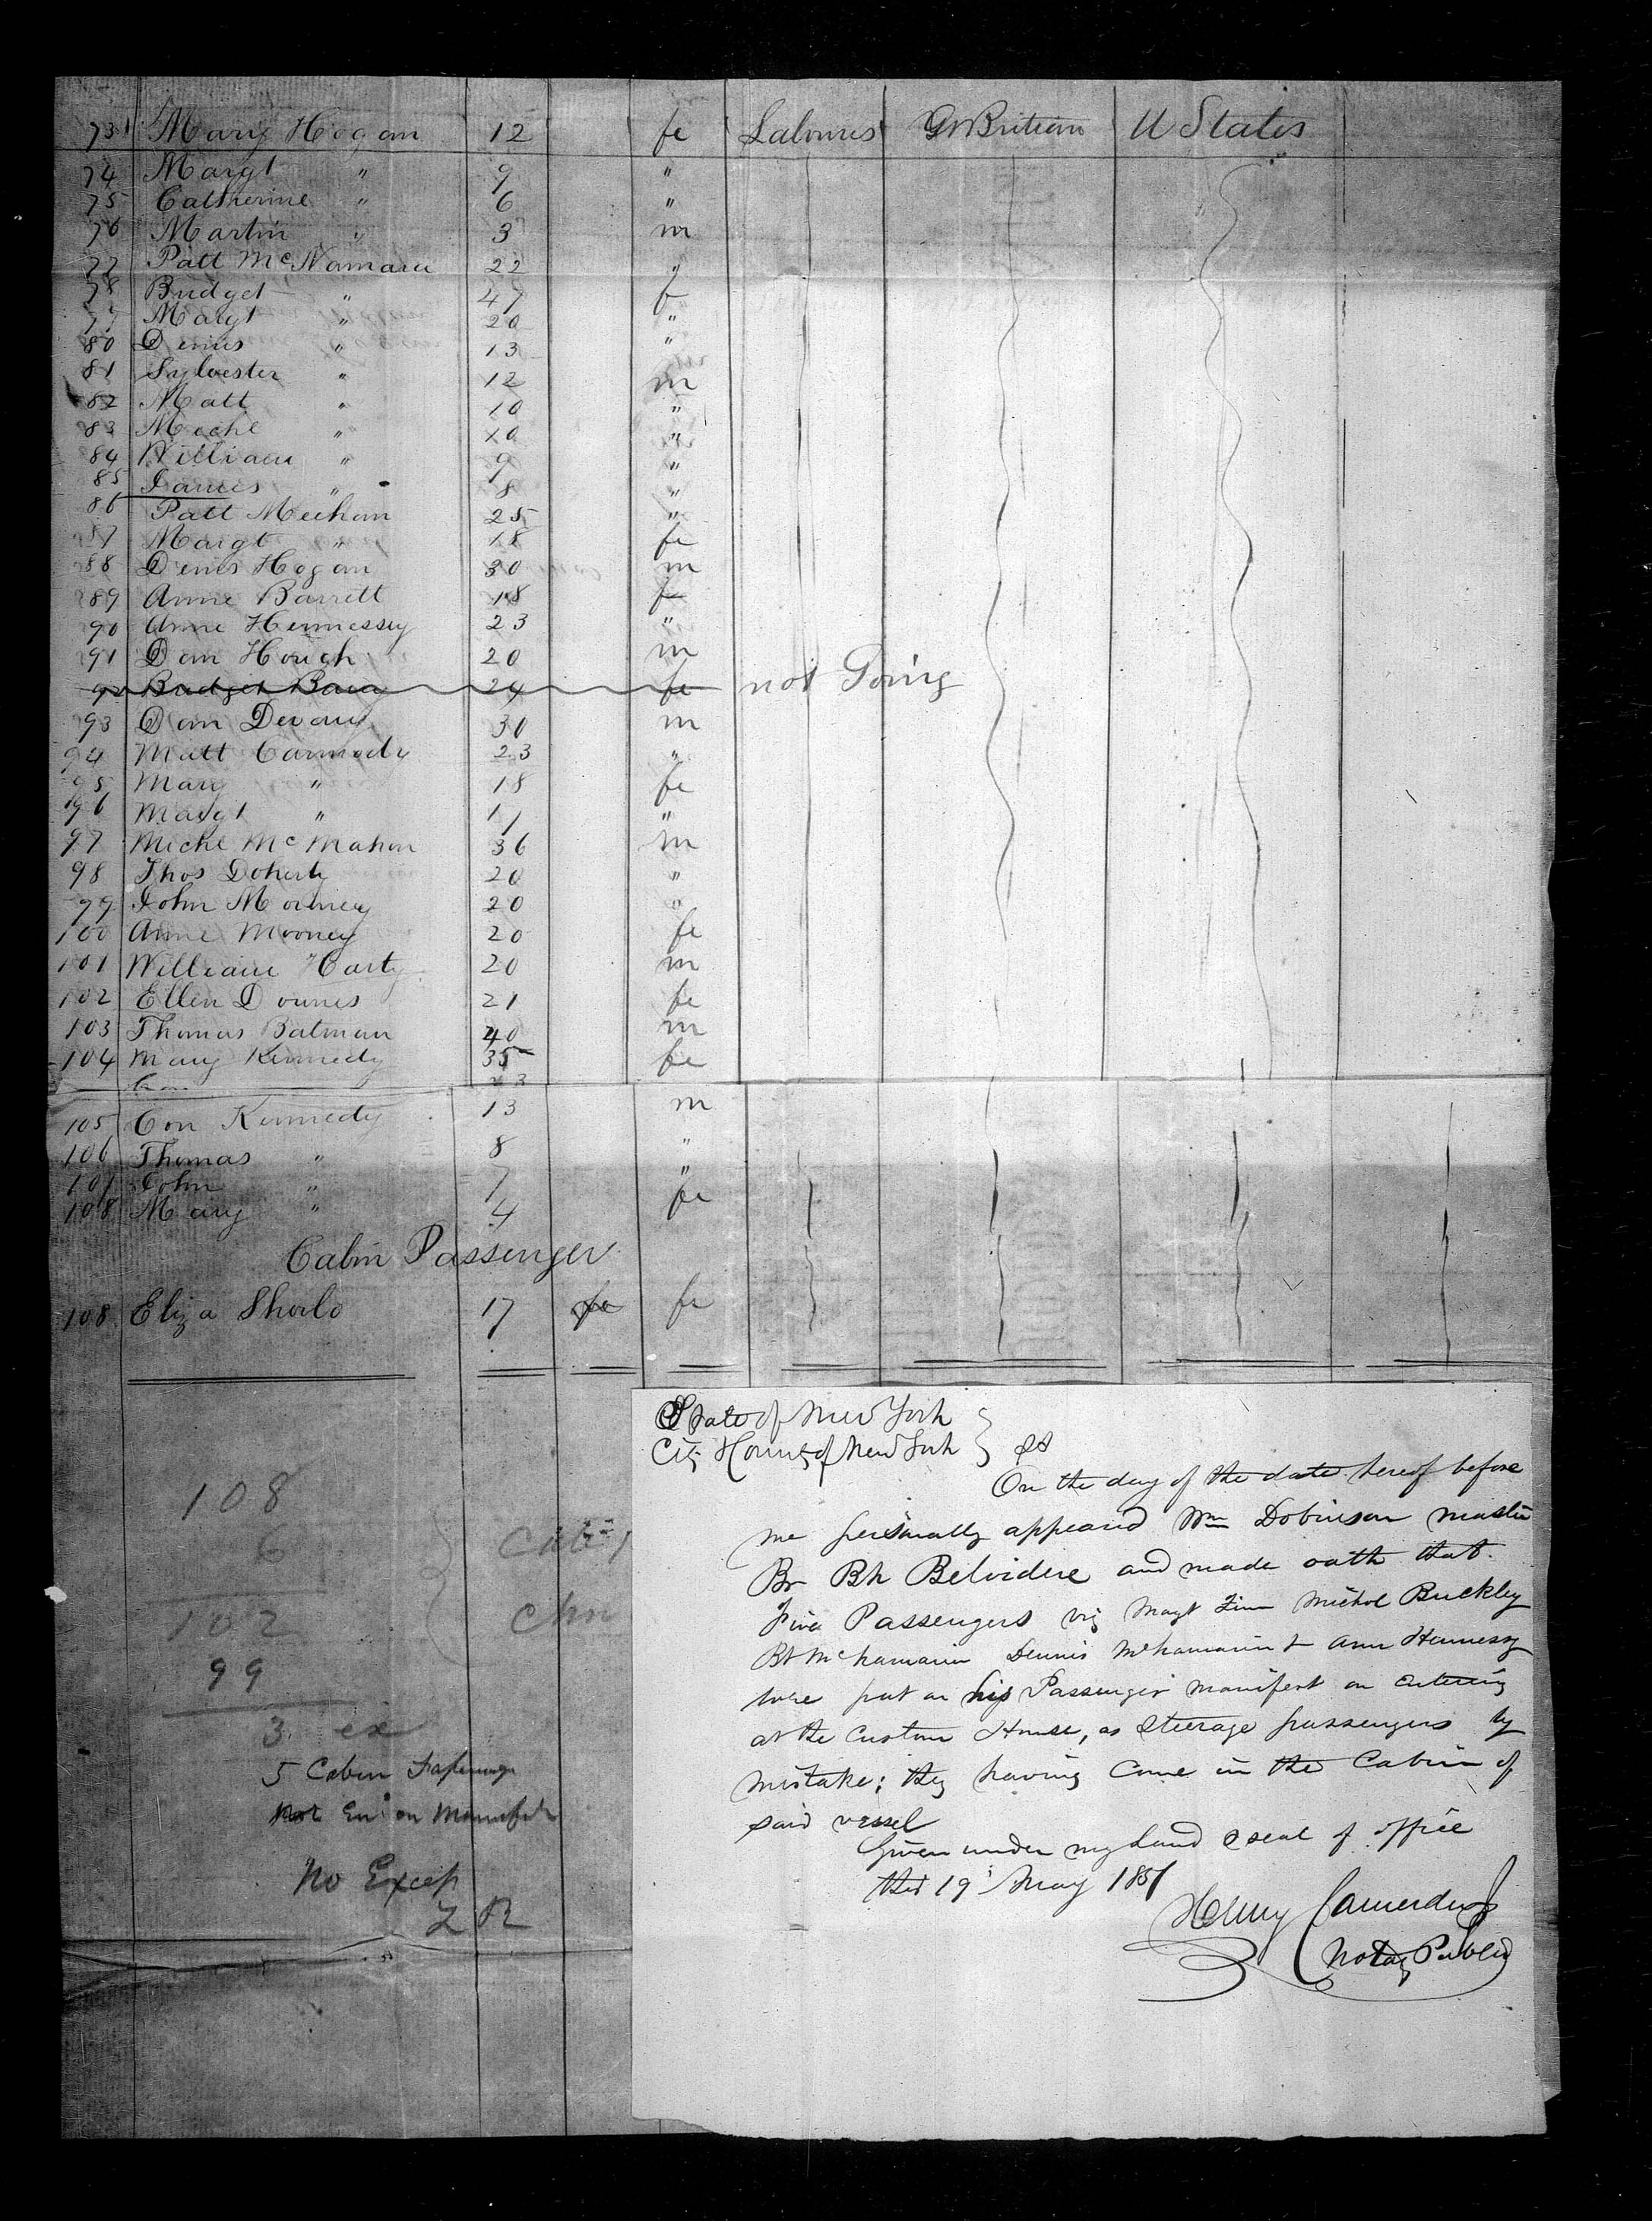 73 Mary Hogan 12 fe Laboures Gt Britian U States
74 Margt " 9 "
75 Catherine " 6 "
76 Martin " 3 m
77 Patt McNamara 22 "
78 Bridget " 47 f
79 Margt " 20 "
80 Denis " 13 "
81 Sylvester " 12 m
82 Matt " 10 "
83 Michl " 10 "
84 William " 9 "
85 James " 8 "
86 Patt Meehan 25 "
87 Margt " 18 fe
88 Denis Hogan 30 m
89 Anne Barrett 18 fe
90 Anne Hennessy 23 "
91 Dan Hough 20 m
92 Bridget 24 fe not Going
93 Dan Devaus 30 m
94 Matt Carmody 23 "
95 Mary " 18 fe
96 Margt " 11 "
97 Michl McMahon 36 m
98 Thos Doherty 20 "
99 John Mooney 20 "
100 Anne Mooney 20 fe
101 William Harty 20 m
102 Ellen Downes 21 fe
103 Thomas Batman 40 m
104 Mary Kennedy 35 fe
105 Con Kennedy 13 m
106 Thomas " 8 "
107 John " 7 "
108 Mary " 4 fe
Cabin Passenger
108 Eliza Shorlo 17 fe fe
State of New York
City & County of New York } SS
On the day of the date hereof before
me personally appeared Wm Dobinson master
Br Bk Belvidere and made oath that
Five Passengers viz Magt Finn Michol Buckley
Bt McNamara Dennis McNamara & Ann Hennessy
were put on his Passenger manifest on Entering
at the Custom House, as Steerage passengers by
mistake; they having Come in the Cabin of
said vessel
Given under my hand & seal of office
this 19 May 1851
Henry Camerden Jr
Notary Public
108
6
102
99
3 ex
5 Cabin Passengers
Not on Manifest
No Excep